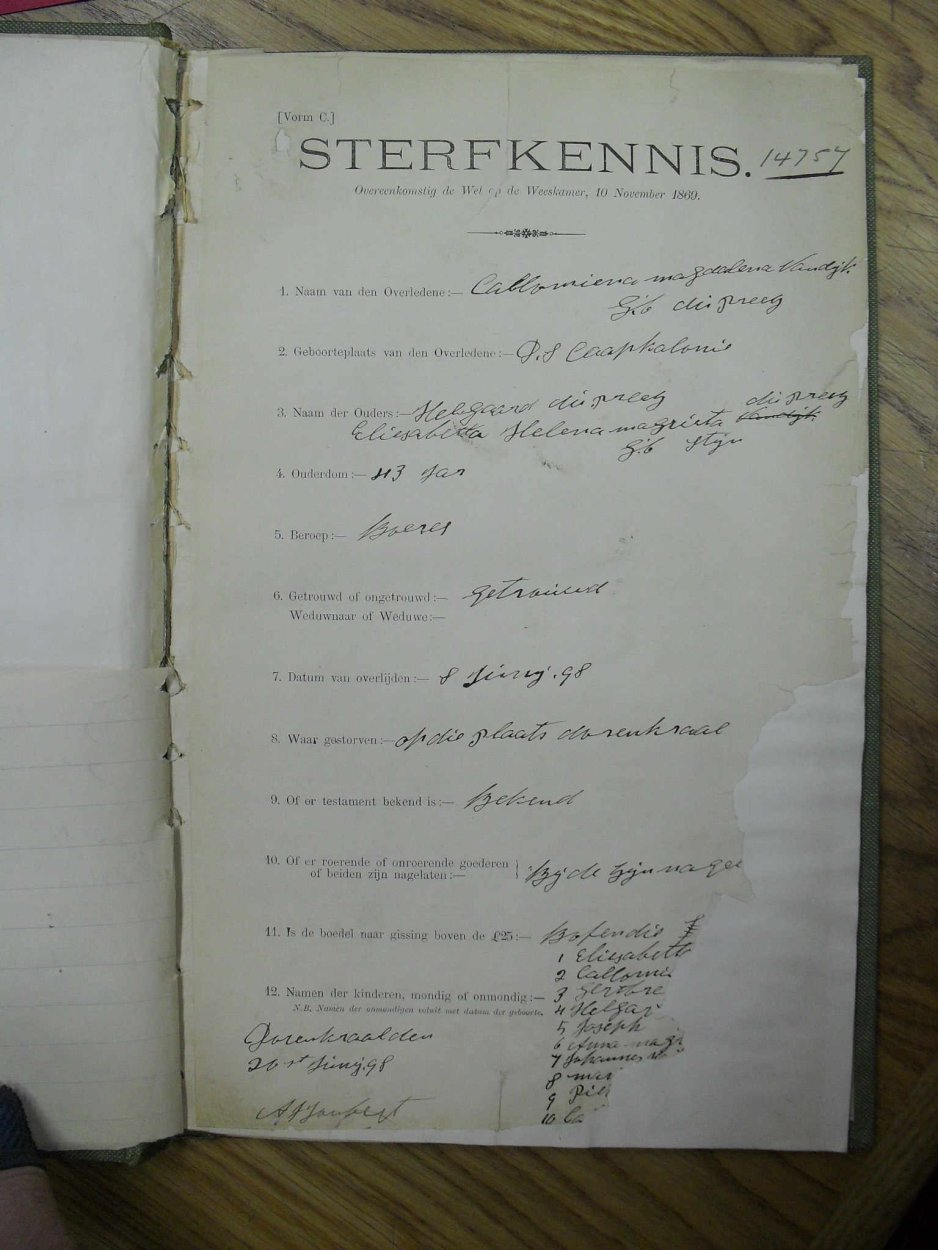 [Vorm C.]
STERFKENNIS. 14757
Overeenkomstig de Wet op de Weeskamer, 10 November 1869.
1. Naam van den Overledene:— Callomiena magdalena Vandijk
G:b du preez
2. Geboorteplaats van den Overledene:— Caapkolonie
3. Naam der Ouders:— Helgaard du preez du preez
Eliesabetta Helena magrieta Vandijk
G:b Stijn
4. Ouderdom:— 43 Jar
5. Beroep:— Boeres
6. Getrouwd of ongetrouwd:— getrouwd
Weduwnaar of Weduwe:—
7. Datum van overlijden:— 8 Junij.98
8. Waar gestorven:— op die plaats dorenkraal
9. Of er testament bekend is:— Bekend
10. Of er roerende of onroerende goederen
of beiden zijn nagelaten:— Byde Zijn nagee
11. Is de boedel naar gissing boven de £25:— Bofendie £
1 Eliesabett
2 Callomie
12. Namen der kinderen, mondig of onmondig:— 3
N.B. Namen der onmondigen voluit met datum der geboorte. 4 Helgar
Dorenkraal den 5 Joseph
6 Anna magr
20st Junij.98 7 Johannes
8 mar
9 Piet
A J Joubert 10 Ca